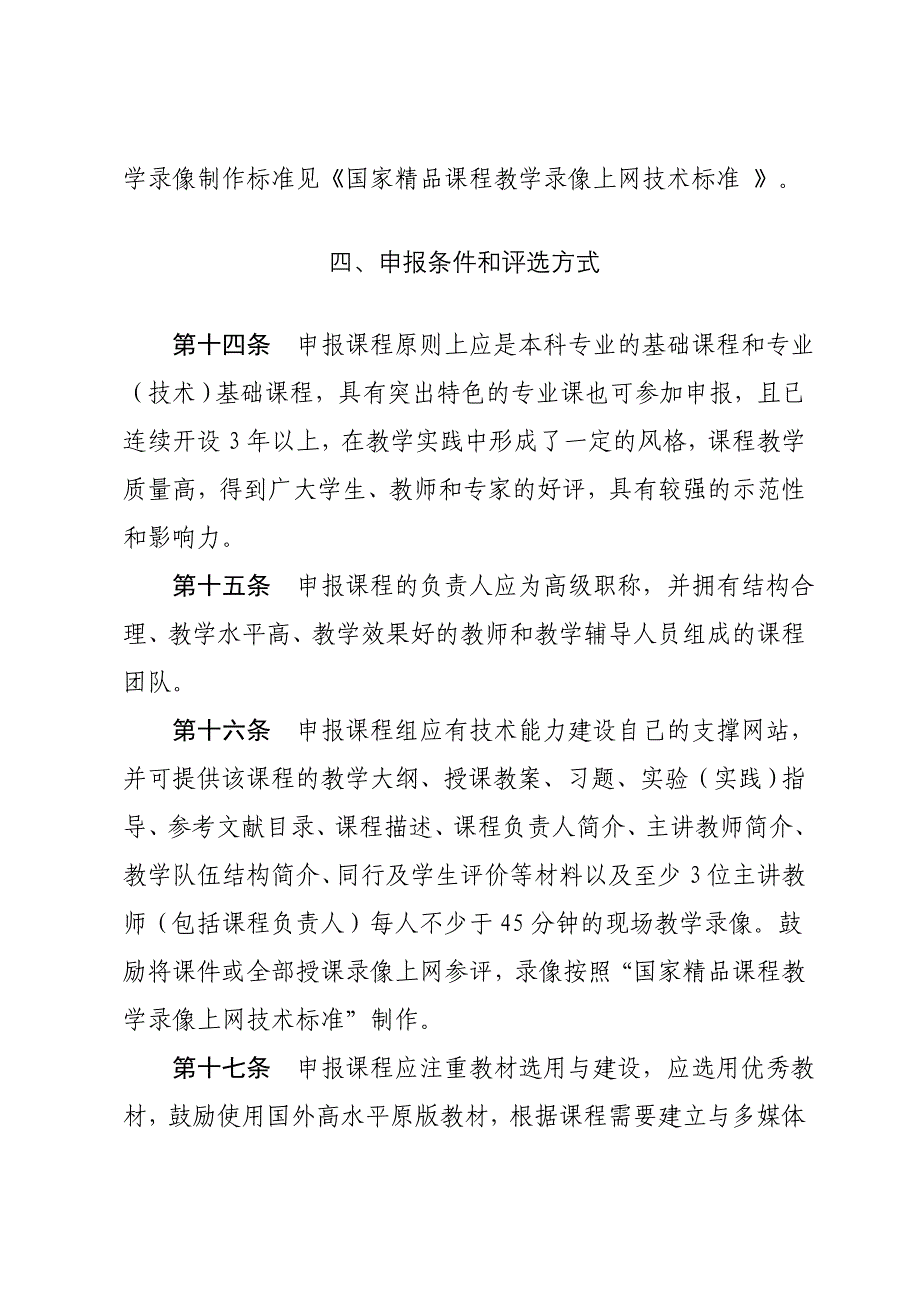 学录像制作标准见《国家精品课程教学录像上网技术标准 》。
四、申报条件和评选方式
第十四条　申报课程原则上应是本科专业的基础课程和专业
（技术）基础课程，具有突出特色的专业课也可参加申报，且已
连续开设 3 年以上，在教学实践中形成了一定的风格，课程教学
质量高，得到广大学生、教师和专家的好评，具有较强的示范性
和影响力。
第十五条　申报课程的负责人应为高级职称，并拥有结构合
理、教学水平高、教学效果好的教师和教学辅导人员组成的课程
团队。
第十六条　申报课程组应有技术能力建设自己的支撑网站，
并可提供该课程的教学大纲、授课教案、习题、实验（实践）指
导、参考文献目录、课程描述、课程负责人简介、主讲教师简介、
教学队伍结构简介、同行及学生评价等材料以及至少 3 位主讲教
师（包括课程负责人）每人不少于 45 分钟的现场教学录像。鼓
励将课件或全部授课录像上网参评，录像按照“国家精品课程教
学录像上网技术标准”制作。
第十七条　申报课程应注重教材选用与建设，应选用优秀教
材，鼓励使用国外高水平原版教材，根据课程需要建立与多媒体